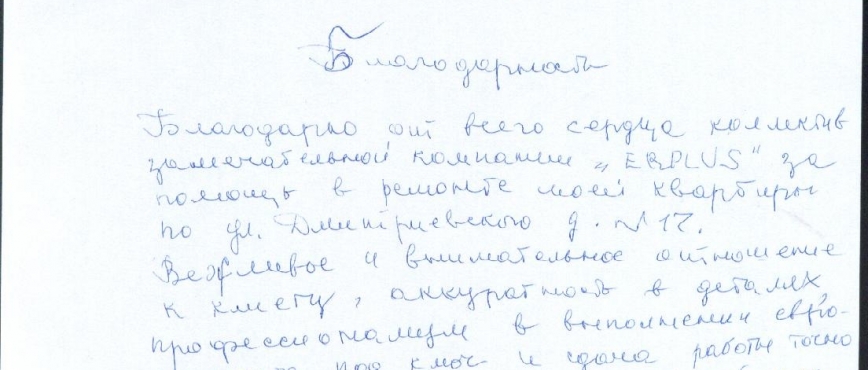 Благодарность
Благодарю от всего сердца коллектив
замечательной компании „ERPLUS" за
помощь в ремонте моей квартиры
по ул. Дмитриевского д. №17.
Вежливое и внимательное отношение
к клиенту, аккуратность в деталях,
профессионализм в выполнении евро-
под ключ и сдача работы точно